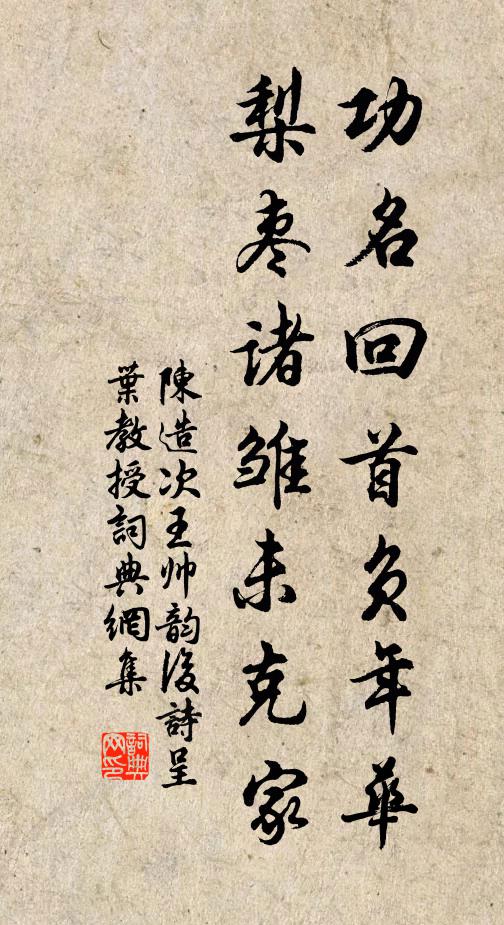 功名回首負年華
梨枣诸雏未克家
陳造次王帅韵後詩呈
葉教授詞典網集
詞典网印